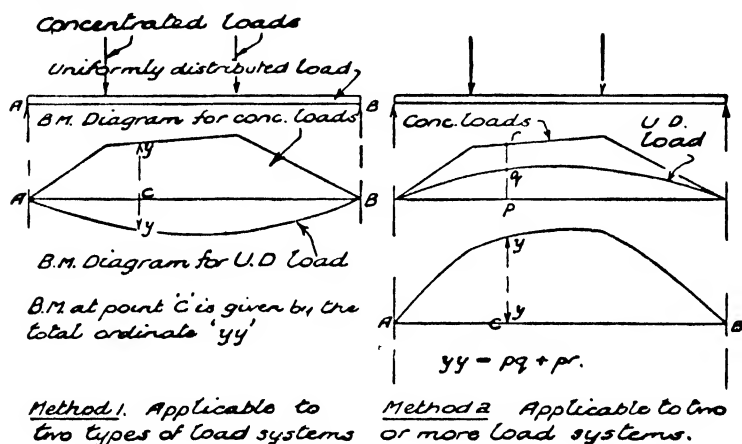 Concentrated loads
Uniformly distributed load
A
B
B.M. Diagram for conc. loads
y
A
C
B
y
B.M. Diagram for U.D load
B.M. at point 'C' is given by the
total ordinate 'yy'
Method 1. Applicable to
two types of load systems
Conc. loads
U.D.
load
r
q
p
y
y
A
C
B
yy = pq + pr.
Method 2 Applicable to two
or more load systems.